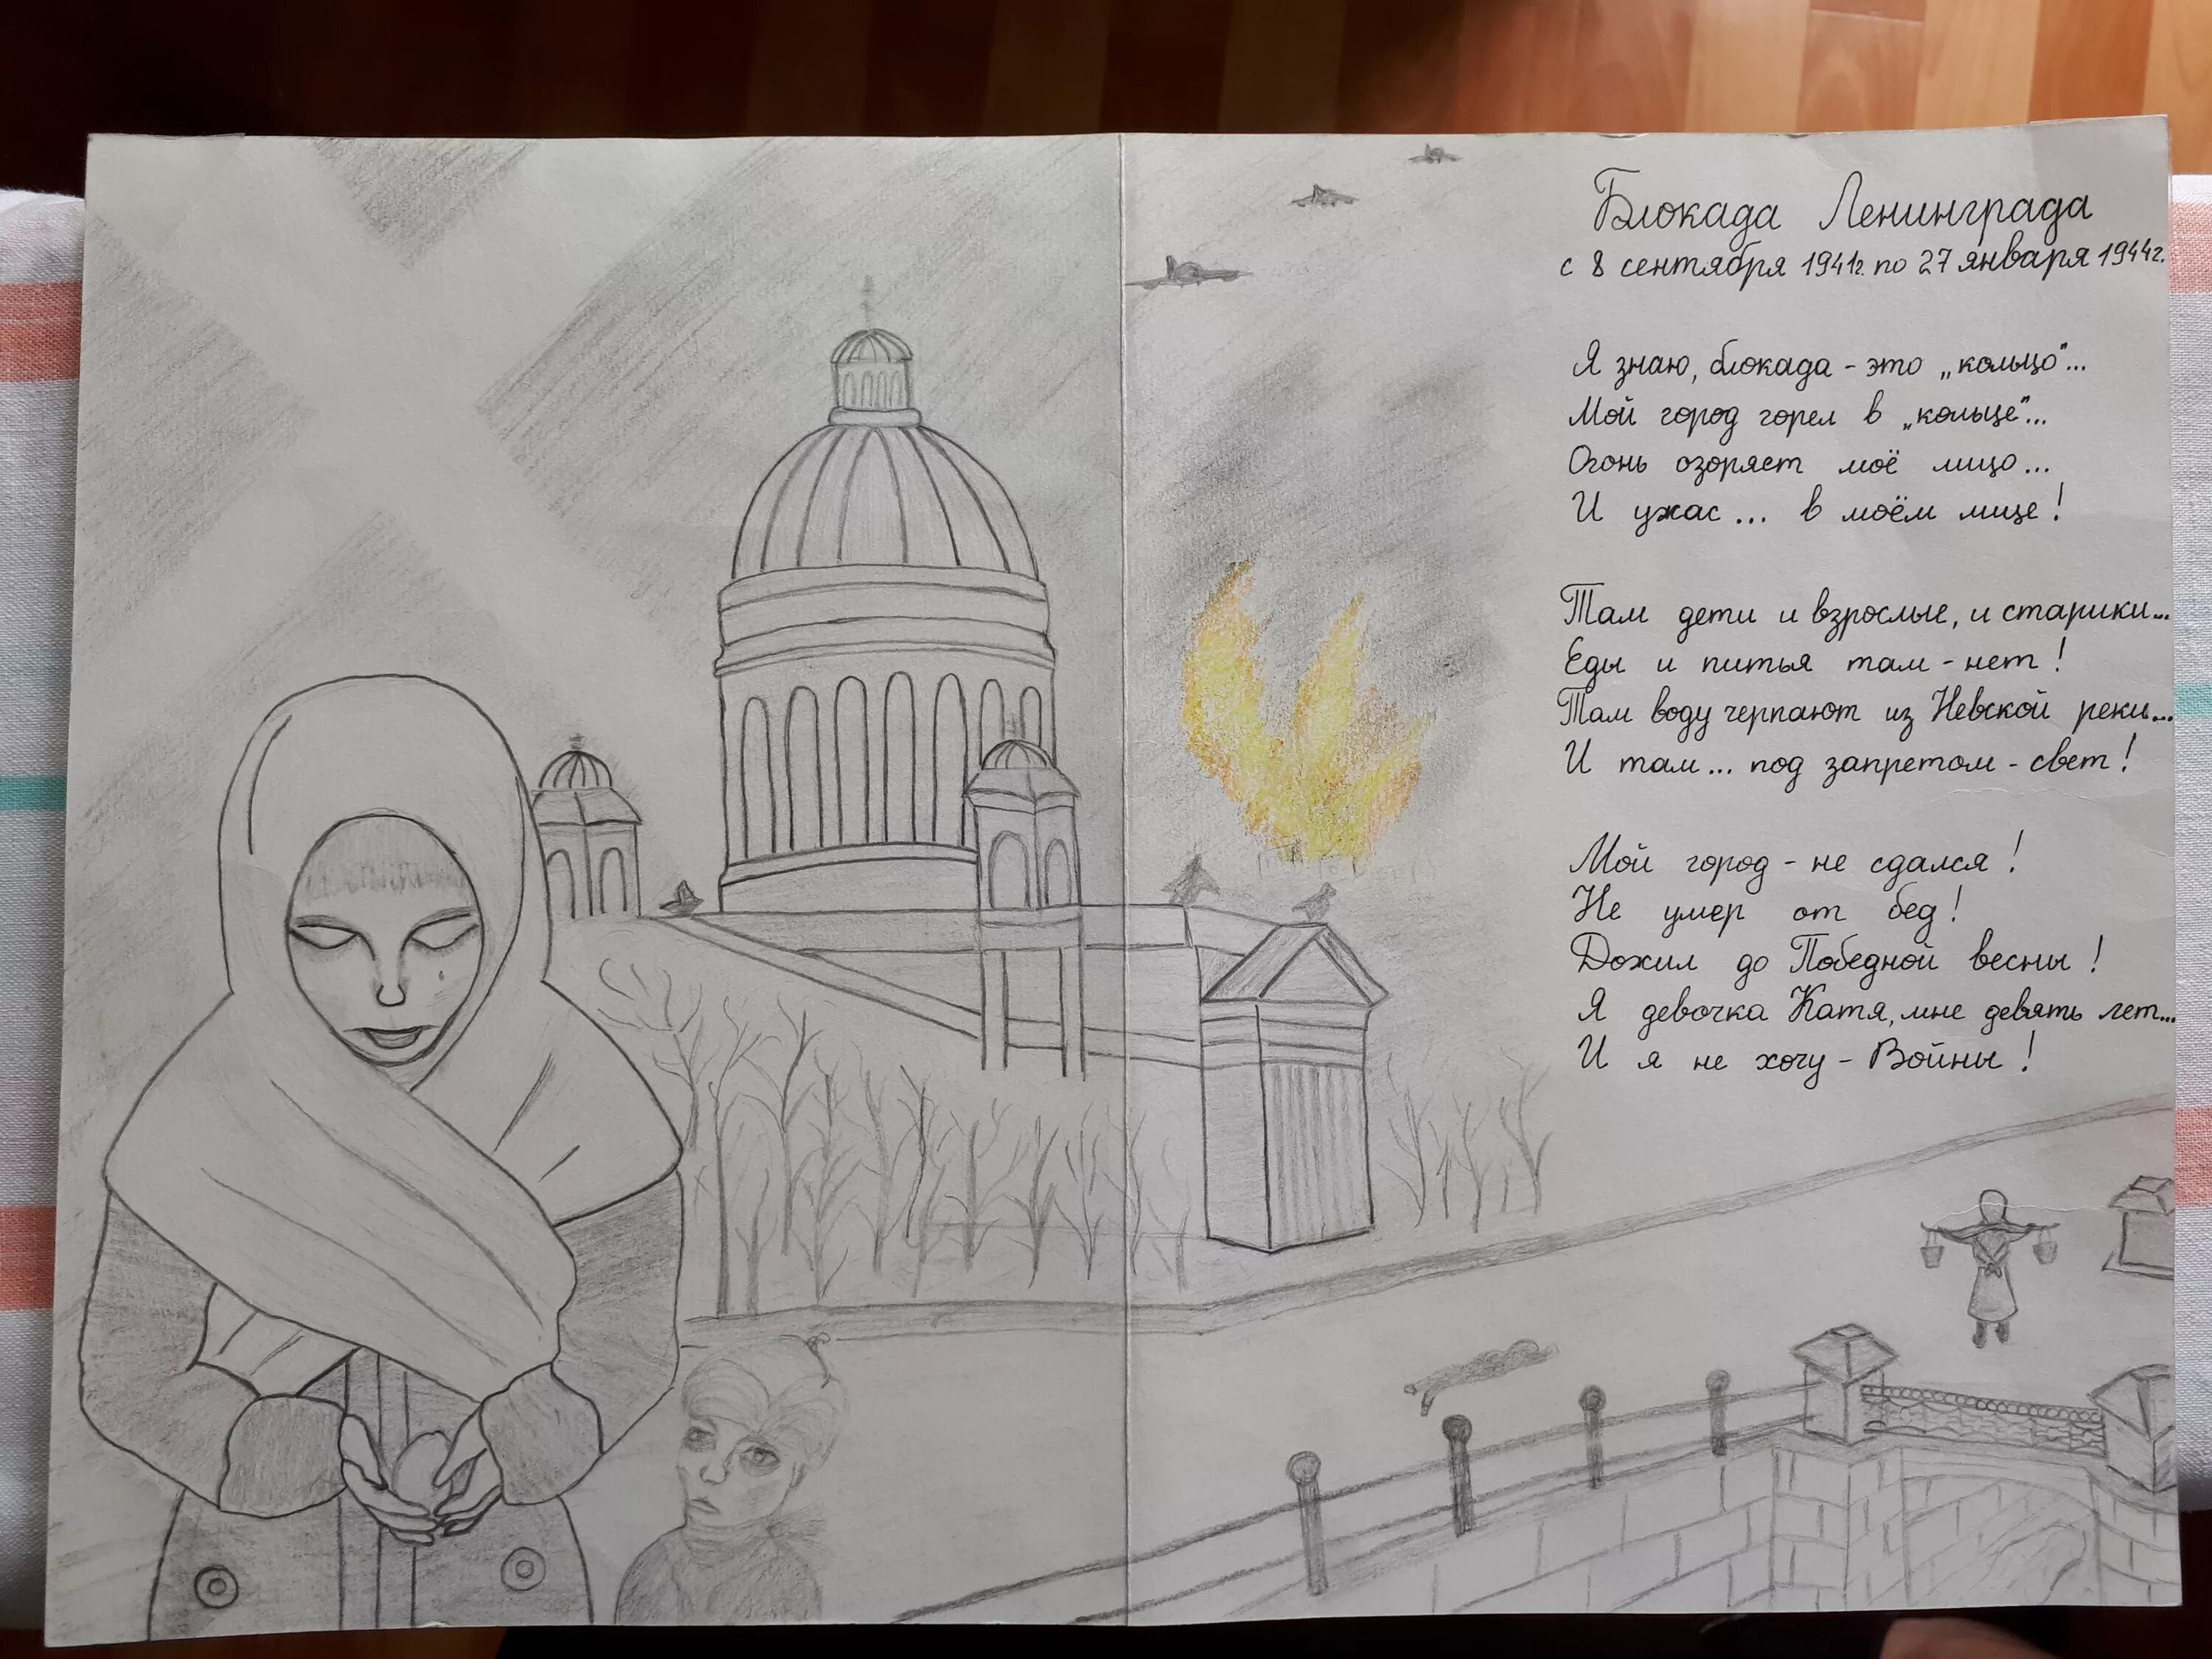 Блокада Ленинграда
с 8 сентября 1941г. по 27 января 1944г.
Я знаю, блокада - это „кольцо"...
Мой город горел в „кольце"...
Огонь озоряет моё лицо...
И ужас... в моём лице!
Там дети и взрослые, и старики...
Еды и питья там - нет!
Там воду черпают из Невской реки...
И там... под запретом - свет!
Мой город - не сдался!
Не умер от бед!
Дожил до Победной весны!
Я девочка Катя, мне девять лет...
И я не хочу - Войны!